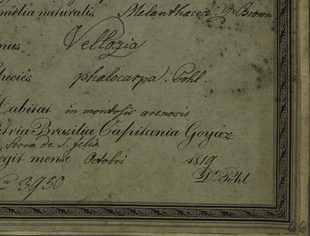 milia naturalis Melanthaceæ R Brown
nus Vellozia
pecies phalocarpa. Pohl.
abitat in montosis arenosis
tria-Brasilia Capitania Goyáz
Serra de S. felix
egit mense Octobri 1819
Dr Pohl
3950